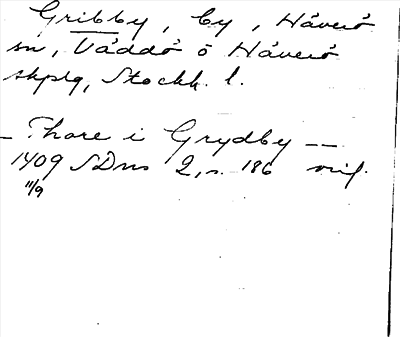 Gribby, by, Häverö
sn, Väddö o Häverö
skplg, Stockh. l.
– Thore i Grydby ––
1409 SDns 2, s. 186 orig.
11/9